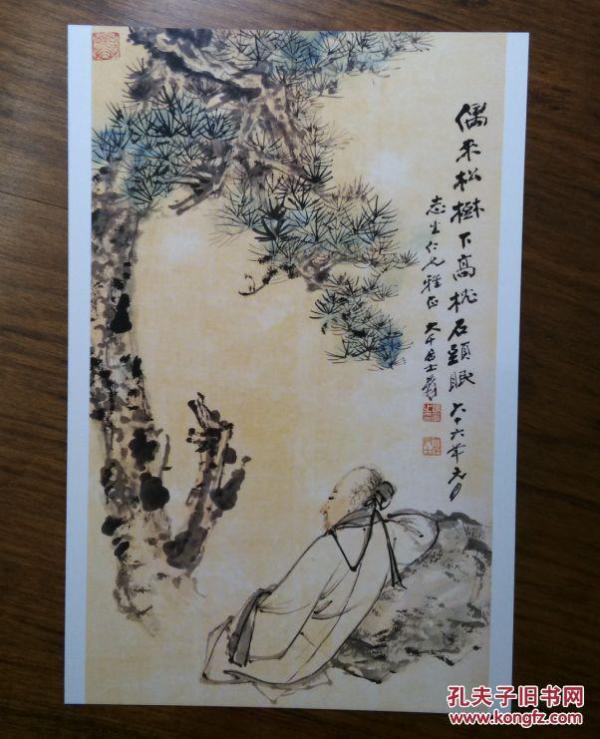 偶来松樹下高枕石頭眠六十六年元月
志生仁兄雅正 大千居士爰
孔夫子旧书网
www.kongfz.com